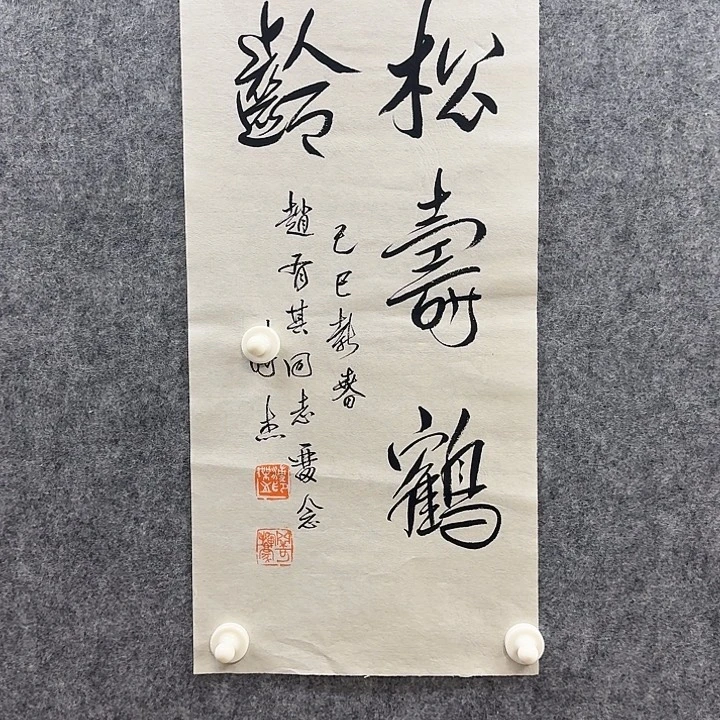 松壽鶴
齡
己巳新春
趙有其同志愛念
杰